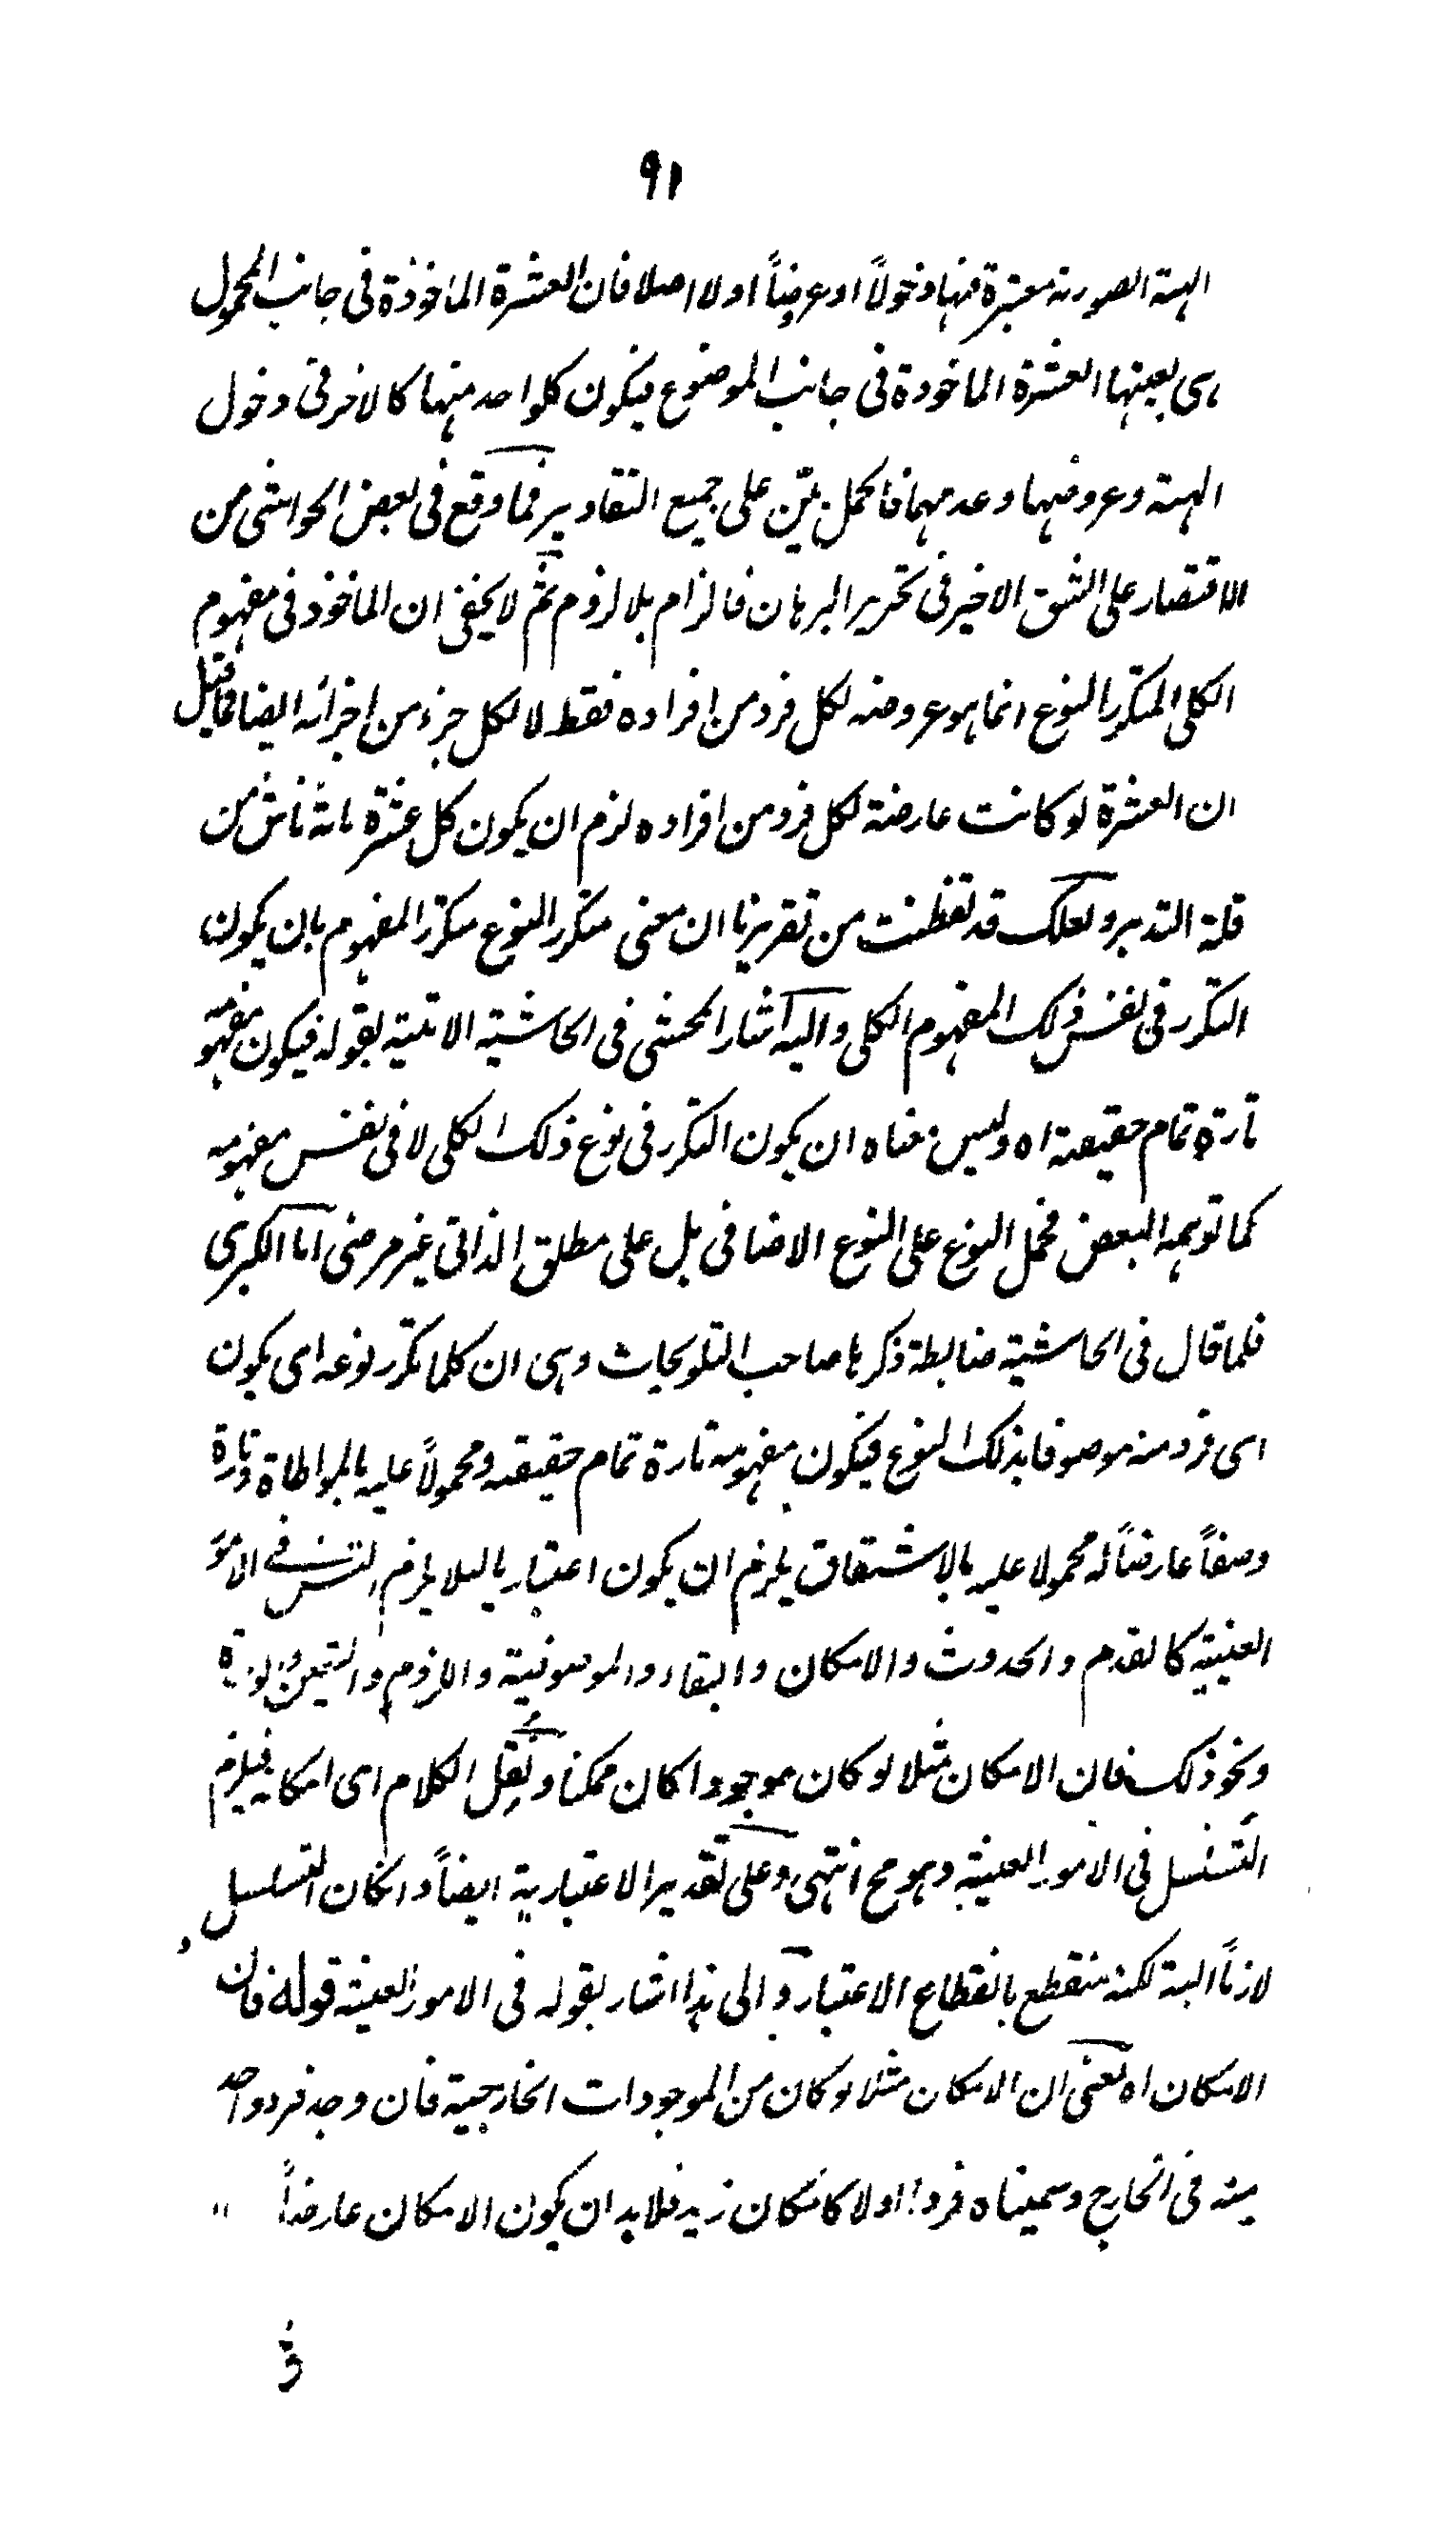 ٩١
الهيئة الصورية معتبرة فيها دخولاً او عروضاً او لا اصلا فان العشرة الماخوذة فى جانب المحمول
هى بعينها العشرة الماخوذة فى جانب الموضوع فيكون كلواحد منهما كالاخر فى دخول
الهيئة وعروضها وعدمهما فالحمل بيّن على جميع التقادير فما وقع فى بعض الحواشى من
الاقتصار على الشق الاخير فى تحرير البرهان فالزام بلا لزوم ثم لا يخفى ان الماخوذ فى مفهوم
الكلى المتكرر النوع انما هو عروضه لكل فرد من افراده فقط لا لكل جزء من اجزائه ايضا فما قيل
ان العشرة لو كانت عارضة لكل فرد من افراده لزم ان يكون كل عشرة مائة ناش من
قلة التدبر ولعلك قد تفطنت من تقريرنا ان معنى متكرر النوع متكرر المفهوم بان يكون
التكرر فى نفس ذلك المفهوم الكلى واليه اشار المحشى فى الحاشية الاتية بقوله فيكون مفهومه
تارة تمام حقيقته اه وليس معناه ان يكون التكرر فى نوع ذلك الكلى لا فى نفس مفهومه
كما توهمه البعض فحمل النوع على النوع الاضافى بل على مطلق الذاتى غير مرضى اما الكبرى
فلما قال فى الحاشية ضابطة ذكرها صاحب التلويحات وهى ان كلما تكرر نوعه اى يكون
اى فرد منه موصوفا بذلك النوع فيكون مفهومه تارة تمام حقيقته ومحمولاً عليه بالمواطاة وتارة
وصفاً عارضاً له محمولا عليه بالاشتقاق يلزم ان يكون اعتباريا لئلا يلزم التس فى الامور
العينية كالقدم والحدوث والامكان والبقاء والموصوفية واللزوم والتعين والوحدة
ونحو ذلك فان الامكان مثلا لو كان موجودا كان ممكنا وننقل الكلام اى امكانه فيلزم
التسلسل فى الامور العينية وهو مح انتهى وعلى تقدير الاعتبارية ايضاً وان كان التسلسل
لازماً البتة لكنه منقطع بانقطاع الاعتبار و الى هذا اشار بقوله فى الامور العينية قوله فان
الامكان اه يعنى ان الامكان مثلا لو كان من الموجودات الخارجية فان وجد فرد واحد
منه فى الخارج وسميناه فردا اولا كامكان زيد فلا بد ان يكون الامكان عارضاً "